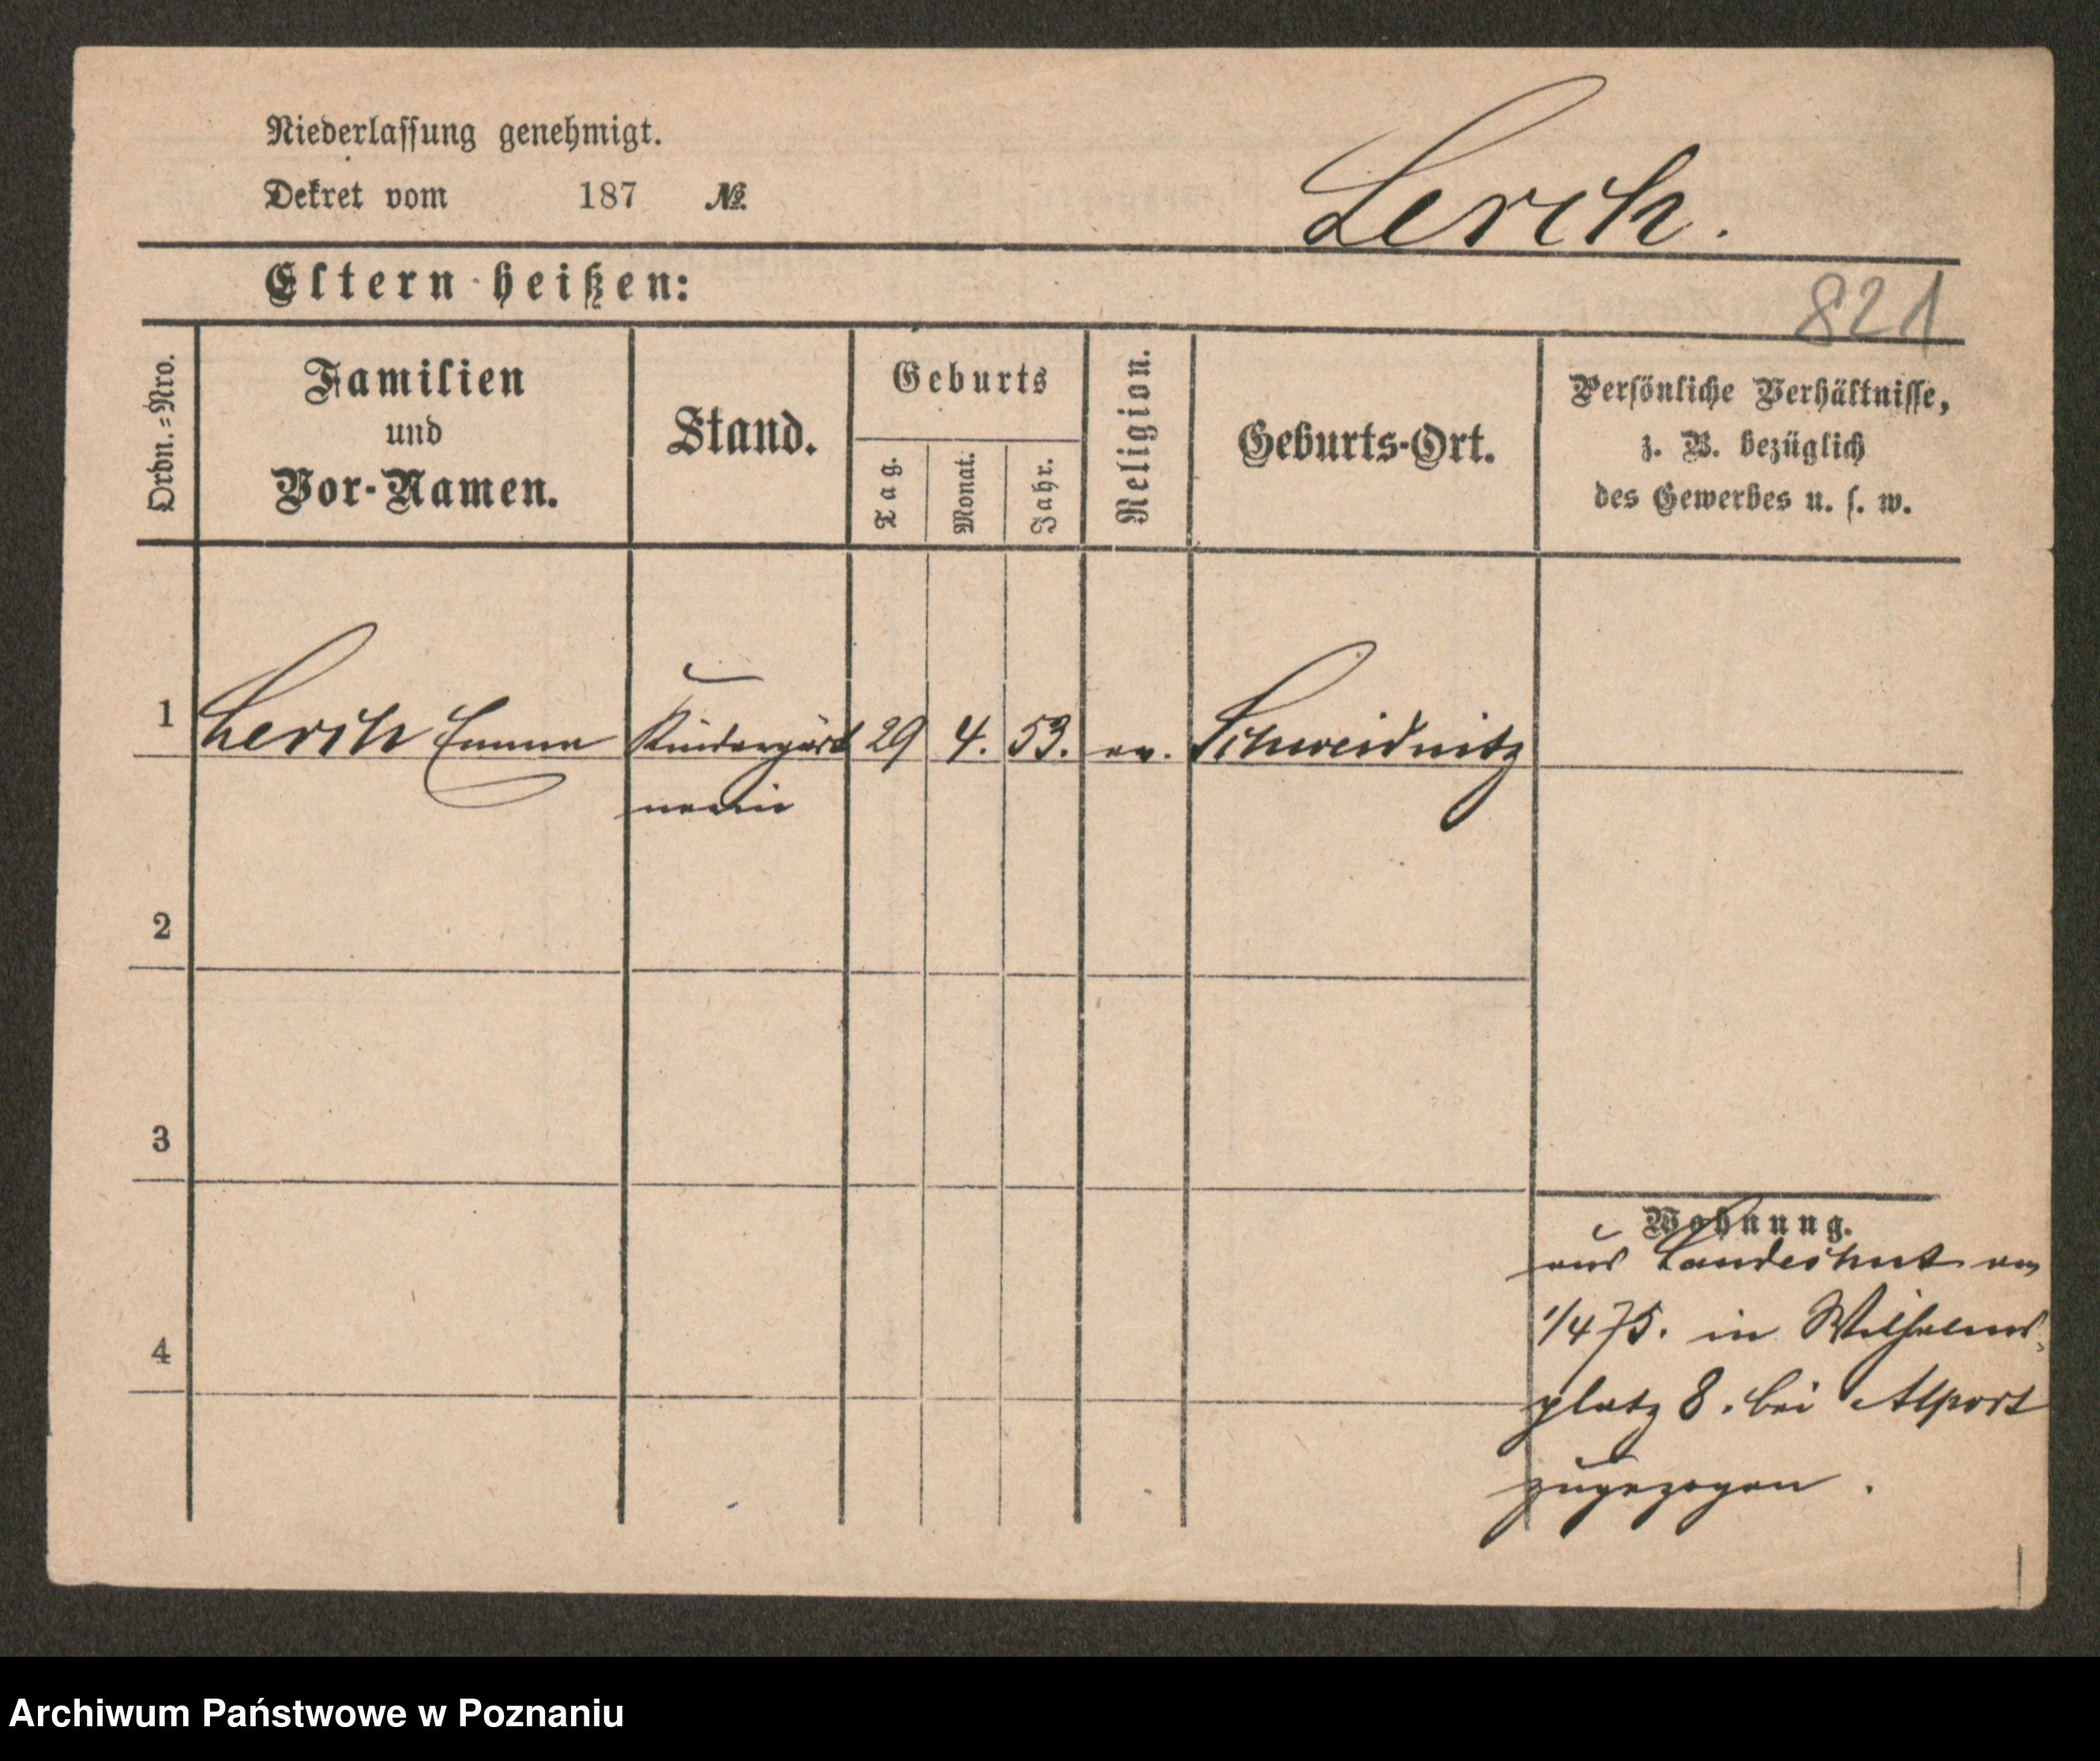 Niederlassung genehmigt.
Dekret vom 187 №
Lerch.
Eltern heißen:
821
Ordn.=Nro.
Familien
und
Vor-Namen.
Stand.
Geburts
Tag.
Monat.
Jahr.
Religion.
Geburts-Ort.
Persönliche Verhältnisse,
z. B. bezüglich
des Gewerbes u. s. w.
1 Lerch Emma Kindergärt 29 4. 53. ev. Schweidnitz
nerin
2
3
4
Wohnung.
aus Landeshut am
1/4 75. in Wilhelms
platz 8. bei Alport
zugezogen.
Archiwum Państwowe w Poznaniu